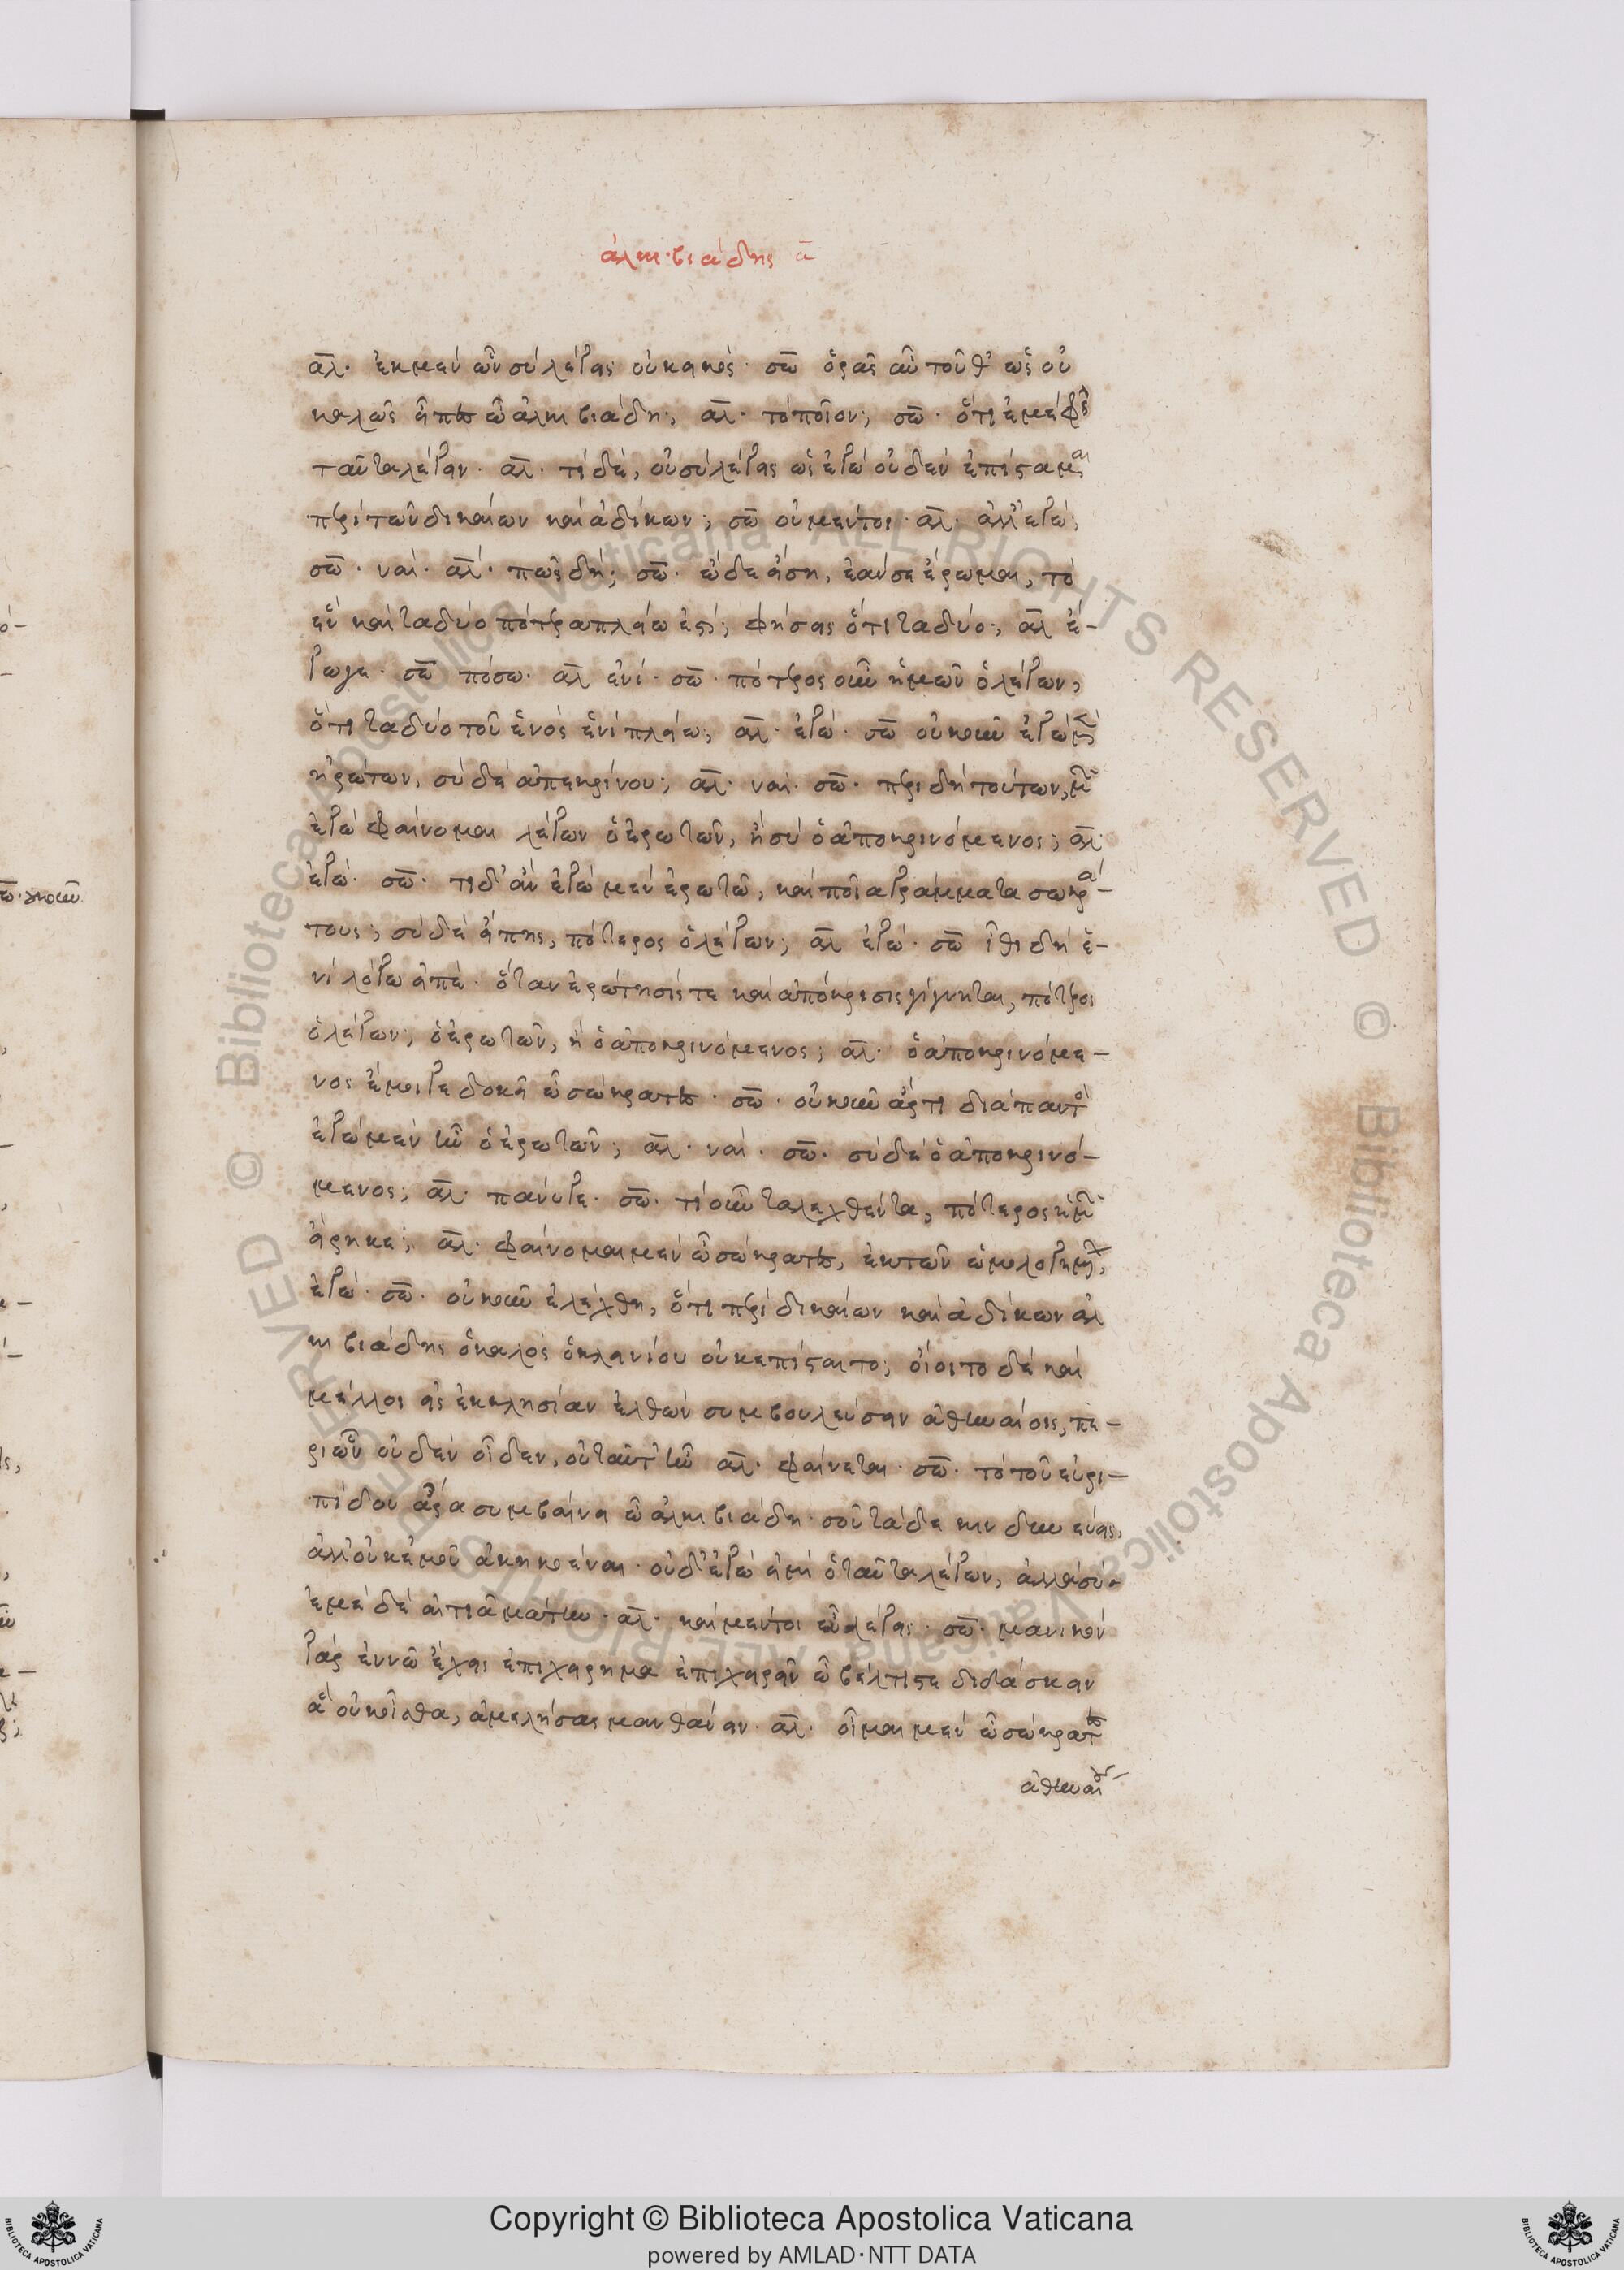 ἀλκιβιάδης ᾱ
ἀλ· ἐκ μὲν ὧν σὺ λέγεις οὐκ εἰκός· σω ὁρᾷς αὖ τοῦθ' ὡς οὐ
καλῶς εἶπες ὦ ἀλκιβιάδη; ἀλ· τὸ ποῖον; σω· ὅτι ἐμὲ φῂς
ταῦτα λέγειν· ἀλ· τί δέ, οὐ σὺ λέγεις ὡς ἐγὼ οὐδὲν ἐπίσταμαι
περὶ τῶν δικαίων καὶ ἀδίκων; σω οὐ μέντοι· ἀλ· ἀλλ' ἐγώ;
σω· ναί· ἀλ· πῶς δή; σω· ὧδε εἴση, ἐάν σε ἔρωμαι, τὸ
ἓν καὶ τὰ δύο πότερα πλείω ἐστί; φήσεις ὅτι τὰ δύο; ἀλ ἔ-
γωγε· σω πόσω· ἀλ ἑνί· σω· πότερος οὖν ἡμῶν ὁ λέγων,
ὅτι τὰ δύο τοῦ ἑνὸς ἑνὶ πλείω; ἀλ· ἐγώ· σω οὐκοῦν ἐγὼ μὲν
ἠρώτων, σὺ δὲ ἀπεκρίνου; ἀλ· ναί· σω· περὶ δὴ τούτων, μῶν
ἐγὼ φαίνομαι λέγων ὁ ἐρωτῶν, ἢ σὺ ὁ ἀποκρινόμενος; ἀλ·
ἐγώ· σω· τί δ' ἂν ἐγὼ μὲν ἐρωτῶ, καὶ ποῖα γράμματα σωκρά-
τους; σὺ δὲ εἴπης, πότερος ὁ λέγων; ἀλ ἐγώ· σω ἴθι δὴ ἑ-
νὶ λόγω εἰπέ· ὅταν ἐρώτησίς τε καὶ ἀπόκρισις γίγνηται, πότερος
ὁ λέγων; ὁ ἐρωτῶν, ἢ ὁ ἀποκρινόμενος; ἀλ· ὁ ἀποκρινόμε-
νος ἔμοιγε δοκεῖ ὦ σώκρατες· σω· οὐκοῦν ἄρτι διὰ παντὸς
ἐγὼ μὲν ἦν ὁ ἐρωτῶν; ἀλ· ναί· σω· σὺ δὲ ὁ ἀποκρινό-
μενος; ἀλ· πάνυ γε· σω· τί οὖν τὰ λεχθέντα, πότερος ἡμῶν
εἴρηκε; ἀλ· φαίνομαι μὲν ὦ σώκρατες, ἐκ τῶν ὡμολογημένων,
ἐγώ· σω· οὐκοῦν ἐλέχθη, ὅτι περὶ δικαίων καὶ ἀδίκων ἀλ
κιβιάδης ὁ καλὸς ὁ κλεινίου οὐκ ἐπίσταιτο; οἴοιτο δὲ καὶ
μέλλοι εἰς ἐκκλησίαν ἐλθὼν συμβουλεύσειν ἀθηναίοις, πε-
ρὶ ὧν οὐδὲν οἶδεν, οὐ ταῦτ' ἦν ἀλ· φαίνεται· σω· τὸ τοῦ εὐρι-
πίδου ἄρα συμβαίνει ὦ ἀλκιβιάδη· σοῦ τάδε κινδυνεύεις,
ἀλλ' οὐκ ἐμοῦ ἀκηκοέναι· οὐδ' ἐγὼ εἰμὶ ὁ ταῦτα λέγων, ἀλλὰ σύ·
ἐμὲ δὲ αἰτιᾶ μάτην· ἀλ· καὶ μέντοι εὖ λέγεις· σω· μανικὸν
γὰρ ἐν νῶ ἔχεις ἐπιχείρημα ἐπιχειρεῖν ὦ βέλτιστε διδάσκειν
ἃ οὐκ οἶσθα, ἀμελήσας μανθάνειν· ἀλ· οἶμαι μὲν ὦ σώκρατες